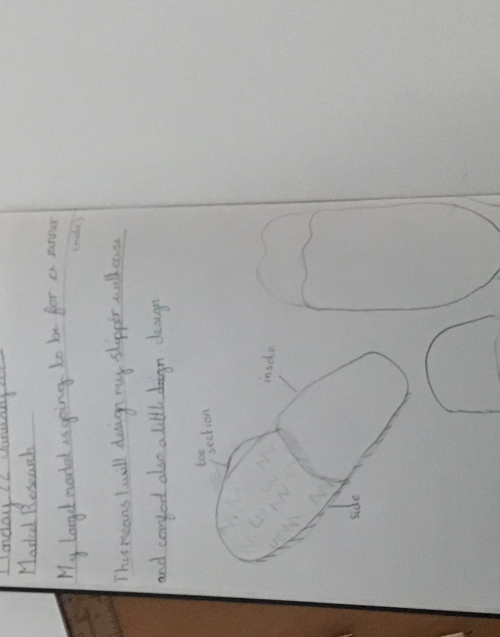 Monday 22 January
Market Research
My target market is going to be for a runner
(male)
This means I will design my slipper with ease
and comfort also a little deign. design
toe
section
inside
side